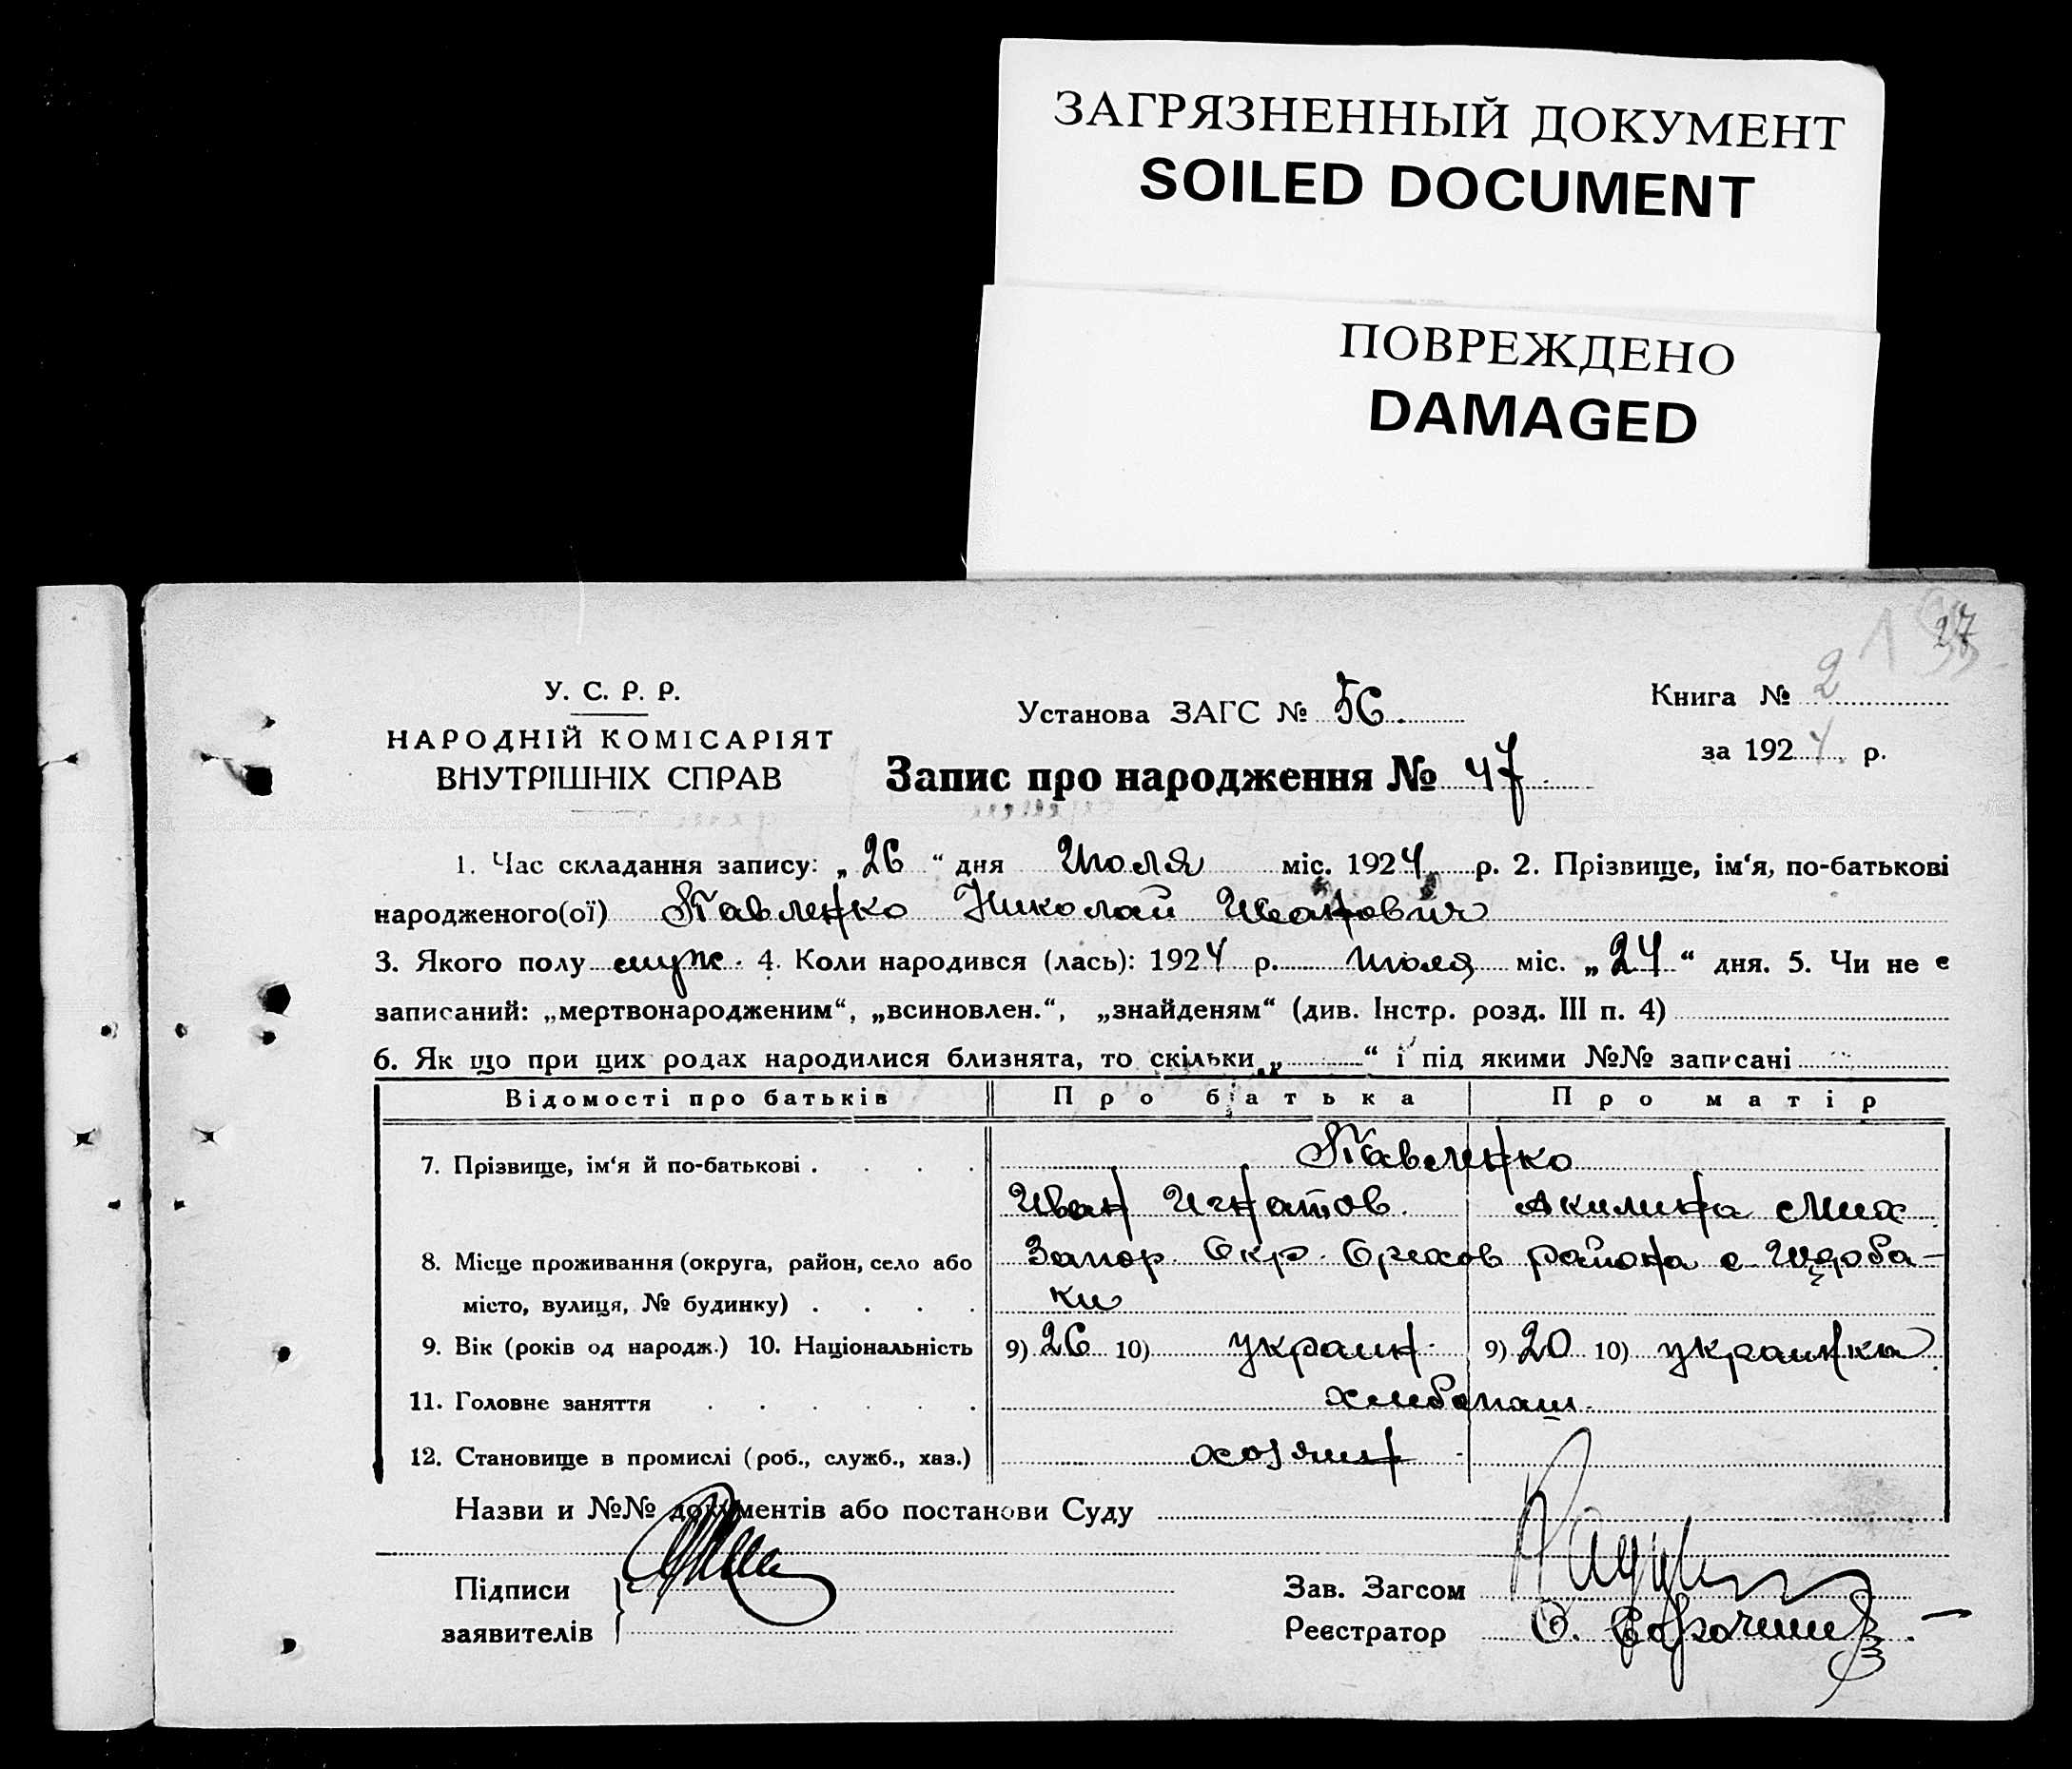 ЗАГРЯЗНЕННЫЙ ДОКУМЕНТ
SOILED DOCUMENT
ПОВРЕЖДЕНО
DAMAGED
27
У. С. Р. Р.
НАРОДНІЙ КОМІСАРІЯТ
ВНУТРІШНІХ СПРАВ
Установа ЗАГС № 56.
Запис про народження № 47
Книга № 2
за 1924 р.
1. Час складання запису: „26“ дня Июля міс. 1924 р. 2. Прізвище, ім‘я, по-батькові
народженого(ої) Павленко Николай Иванович
3. Якого полу муж. 4. Коли народився (лась): 1924 р. июля міс. „24“ дня. 5. Чи не є
записаний: „мертвонародженим“, „всиновлен.“, „знайденям“ (див. Інстр. розд. III п. 4)
6. Як що при цих родах народилися близнята, то скільки „ “ і під якими №№ записані
Відомості про батьків Про батька Про матір
7. Прізвище, ім‘я й по-батькові . . . . Павленко
Иван Игнатов. Акилина Мих
8. Місце проживання (округа, район, село або Запор. Окр. Орехов района с. Щерба-
місто, вулиця, № будинку) . . . . ки
9. Вік (років од народж.) 10. Національність 9) 26 10) украин. 9) 20 10) украинка
11. Головне заняття . . . . . . хлебопаш.
12. Становище в промислі (роб., служб., хаз.) хозяин
Назви и №№ документів або постанови Суду
Підписи
заявителів
Зав. Загсом
Реєстратор О.